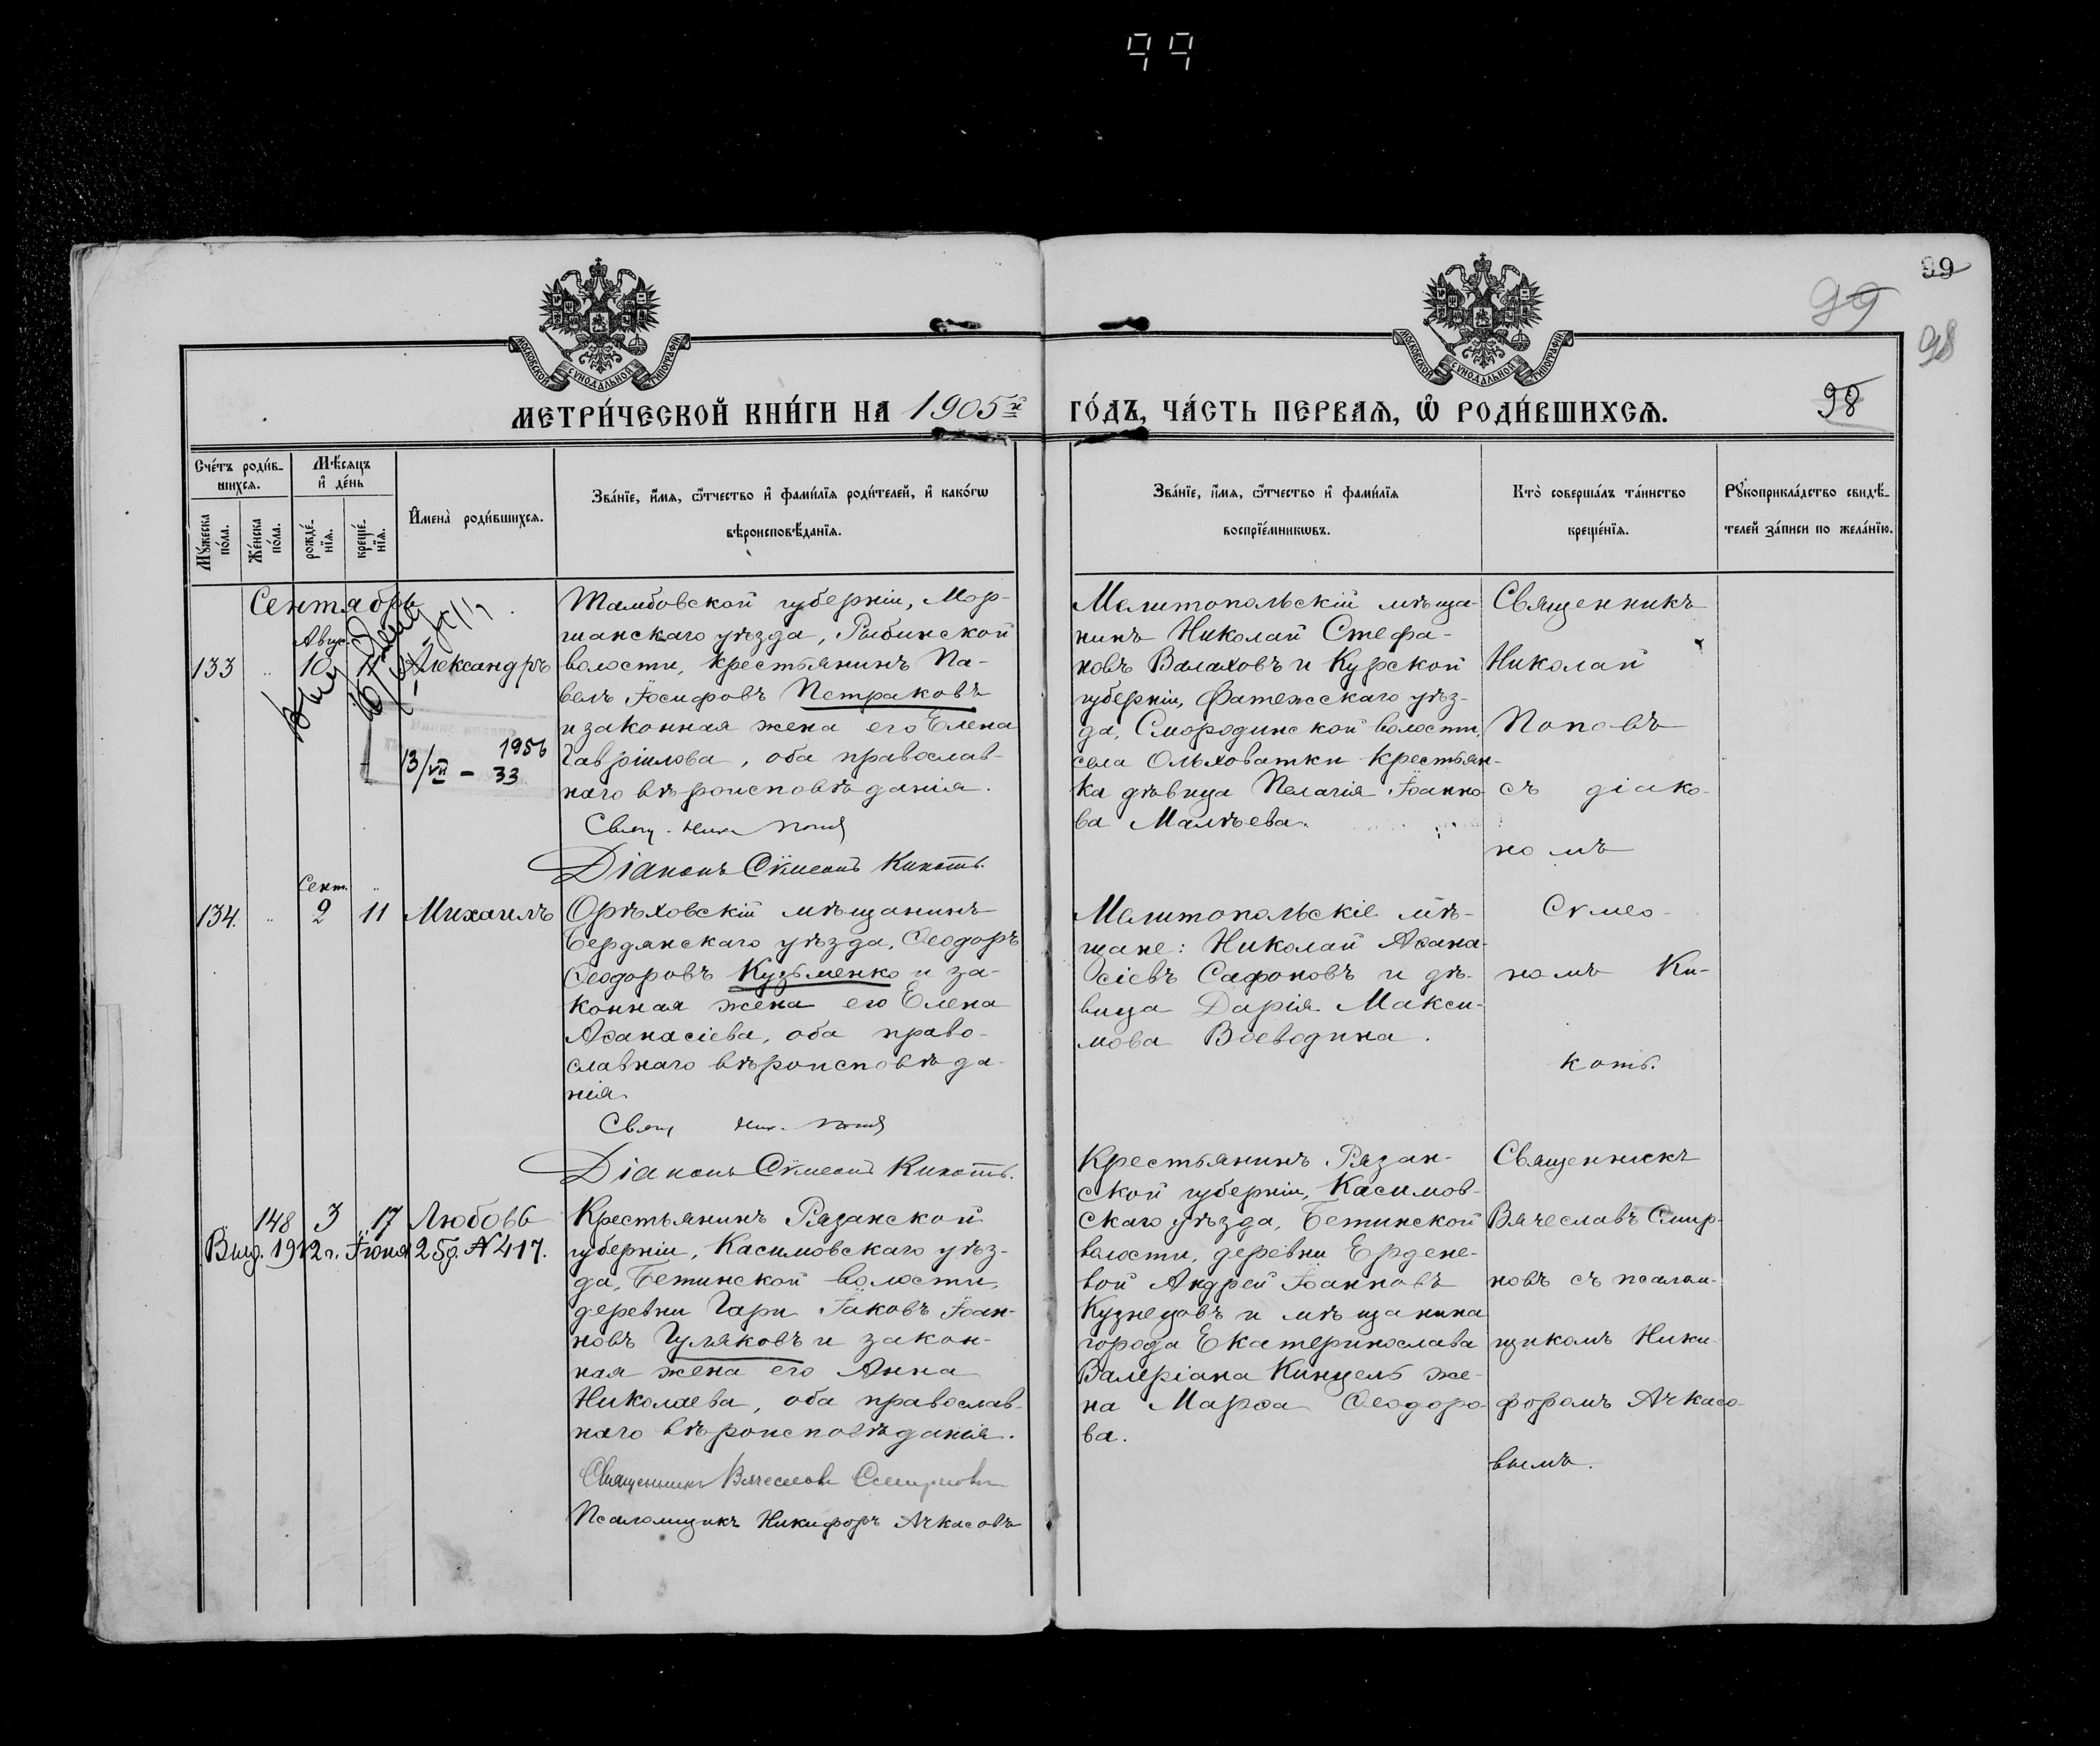 99
99
99
98
98
МОСКОВСКОЙ СУНОДАЛЬНОЙ ТИПОГРАФІИ
МОСКОВСКОЙ СУНОДАЛЬНОЙ ТИПОГРАФІИ
МЕТРИ́ЧЕСКОЙ КНИ́ГИ НА 1905й ГО́ДЪ, ЧА́СТЬ ПЕРВАѦ, Ѡ҆ РОДИ́ВШИХСѦ.
Сче́тъ роди́в-
шихсѧ.
Мѣ́сѧцъ
и҆ де́нь
Мꙋ́жеска
по́ла.
Же́нска
по́ла.
рожде́-
нїѧ.
креще́-
нїѧ.
И҆мена̀ роди́вшихсѧ.
Зва́нїе, и҆́мѧ, ѻ҆́тчество и҆ фами́лїѧ роди́телей, и҆ како́гѡ
вѣроисповѣ́данїѧ.
Зва́нїе, и҆́мѧ, ѻ҆́тчество и҆ фами́лїѧ
воспрїе́мникѡвъ.
Кто̀ соверша́лъ та́инство
креще́нїѧ.
Рꙋкоприкла́дство свидѣ́-
телей за́писи по жела́нїю.
Сентябрь
Авгус.
133 " 10 11 Александръ
13/VII - 1956
33
Тамбовской губерніи, Мор-
шанскаго уѣзда, Рыбинской
волости, крестьянинъ Па-
велъ Іосифовъ Петраковъ
и законная жена его Елена
Гавріилова, оба православ-
наго вѣроисповѣданія.
Свящ. Ник. Попов
Діаконъ Сѵмеонъ Кикоть.
Мелитопольскій мѣща-
нинъ Николай Стефа-
новъ Валаховъ и Курской
губерніи, Фатежскаго уѣз-
да, Смородинской волости,
села Ольховатки крестьян-
ка дѣвица Пелагія Іоанно-
ва Малѣева.
Священникъ
Николай
Поповъ
съ діако-
номъ
Сѵмео-
номъ Ки-
коть.
Сент. "
134. " 2 11 Михаилъ
Орѣховскій мѣщанинъ
Бердянскаго уѣзда, Ѳеодоръ
Ѳеодоровъ Кузьменко и за-
конная жена его Елена
Аѳанасіева, оба право-
славнаго вѣроисповѣда-
нія.
Свящ Ник. Попов
Діаконъ Сѵмеонъ Кикоть.
Мелитопольскіе мѣ-
щане: Николай Аѳана-
сіевъ Сафоновъ и дѣ-
вица Дарія Макси-
мова Воеводина.
148 3 17 Любовь
Выд. 1912 г. Іюня 25 д. № 417.
Крестьянинъ Рязанской
губерніи, Касимовскаго уѣз-
да, Бетинской волости,
деревни Гари Іаковъ Іоан-
новъ Гуляковъ и закон-
ная жена его Анна
Николаева, оба православ-
наго вѣроисповѣданія.
Священникъ Вячеславъ Смирновъ
Псаломщикъ Никифоръ Ачкасовъ
Крестьянинъ Рязан-
ской губерніи, Касимов-
скаго уѣзда, Бетинской
волости, деревни Ердене-
вой Андрей Іоанновъ
Кузнецовъ и мѣщанина
города Екатеринослава
Валеріана Кинцель же-
на Марѳа Ѳеодоро-
ва.
Священникъ
Вячеславъ Смир-
новъ съ псалом-
щикомъ Ники-
форомъ Ачкасо-
вымъ.